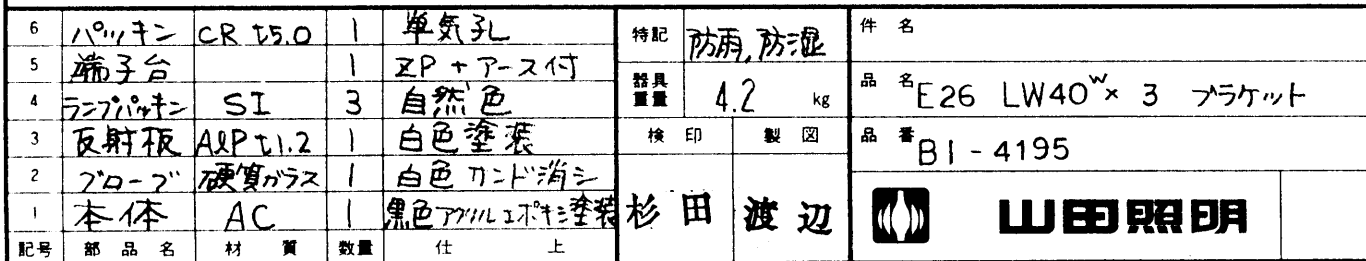 6 パッキン CR t5.0 1 単気孔
5 端子台 1 2P+アース付
4 ランプパッキン SI 3 自然色
3 反射板 AlP t1.2 1 白色塗装
2 グローブ 硬質ガラス 1 白色サンド消シ
1 本体 AC 1 黒色アクリルエポキシ塗装
記号 部品名 材質 数量 仕上
特記 防雨,防湿
器具重量 4.2 kg
検印 製図
杉田 渡辺
件名
品名 E26 LW40W×3 ブラケット
品番 BI-4195
山田照明